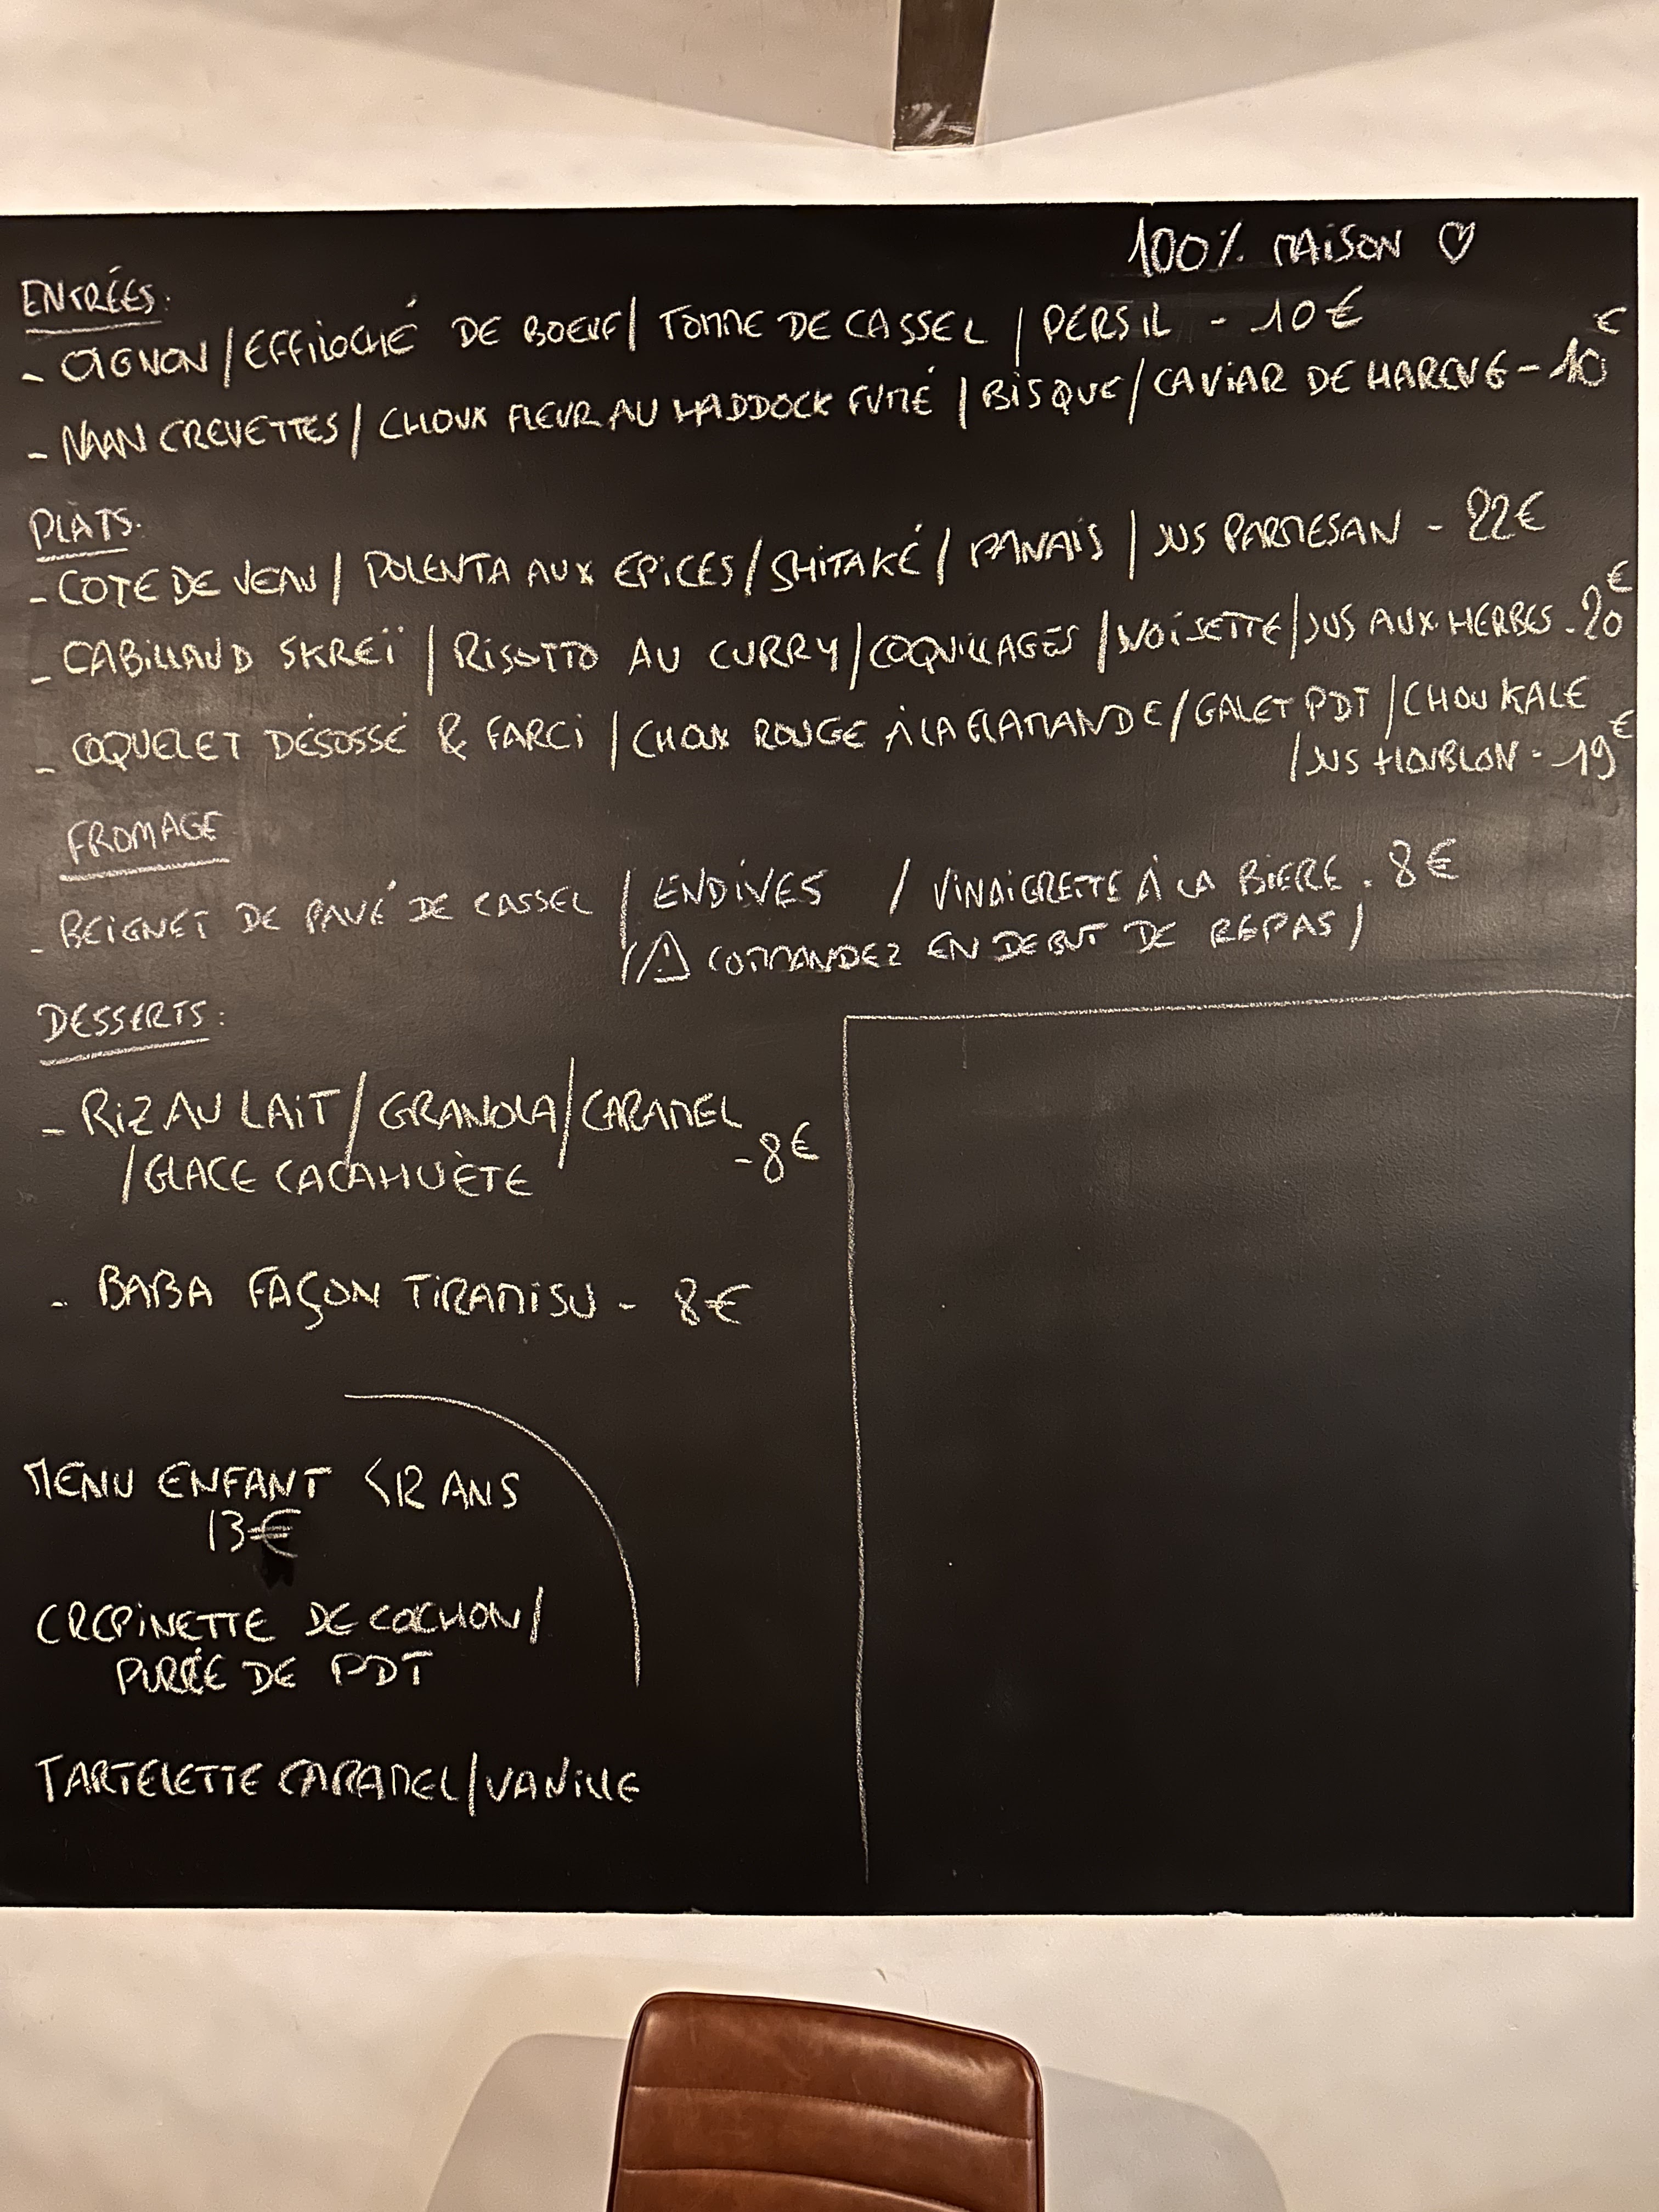 100% MAISON ♡
ENTRÉES:
- OIGNON / EFFILOCHÉ DE BOEUF / TOMME DE CASSEL / PERSIL - 10€
- NAAN CREVETTES / CHOUX FLEUR AU HADDOCK FUMÉ / BISQUE / CAVIAR DE HARENG - 10€
PLATS.
- COTE DE VEAU / POLENTA AUX EPICES / SHITAKÉ / PANAIS / JUS PARMESAN - 22€
- CABILLAUD SKREÏ / RISOTTO AU CURRY / COQUILLAGES / NOISETTE / JUS AUX HERBES - 20€
- COQUELET DÉSOSSÉ & FARCI / CHOUX ROUGE À LA FLAMANDE / GALET PDT / CHOU KALE
/ JUS HOUBLON - 19€
FROMAGE
- BEIGNET DE PAVÉ DE CASSEL / ENDIVES / VINAIGRETTE À LA BIERE . 8€
(⚠ COMMANDEZ EN DEBUT DE REPAS)
DESSERTS:
- RIZ AU LAIT / GRANOLA / CARAMEL
/ GLACE CACAHUÈTE - 8€
- BABA FAÇON TIRAMISU - 8€
MENU ENFANT <12 ANS
13€
CREPINETTE DE COCHON /
PURÉE DE PDT
TARTELETTE CARAMEL / VANILLE